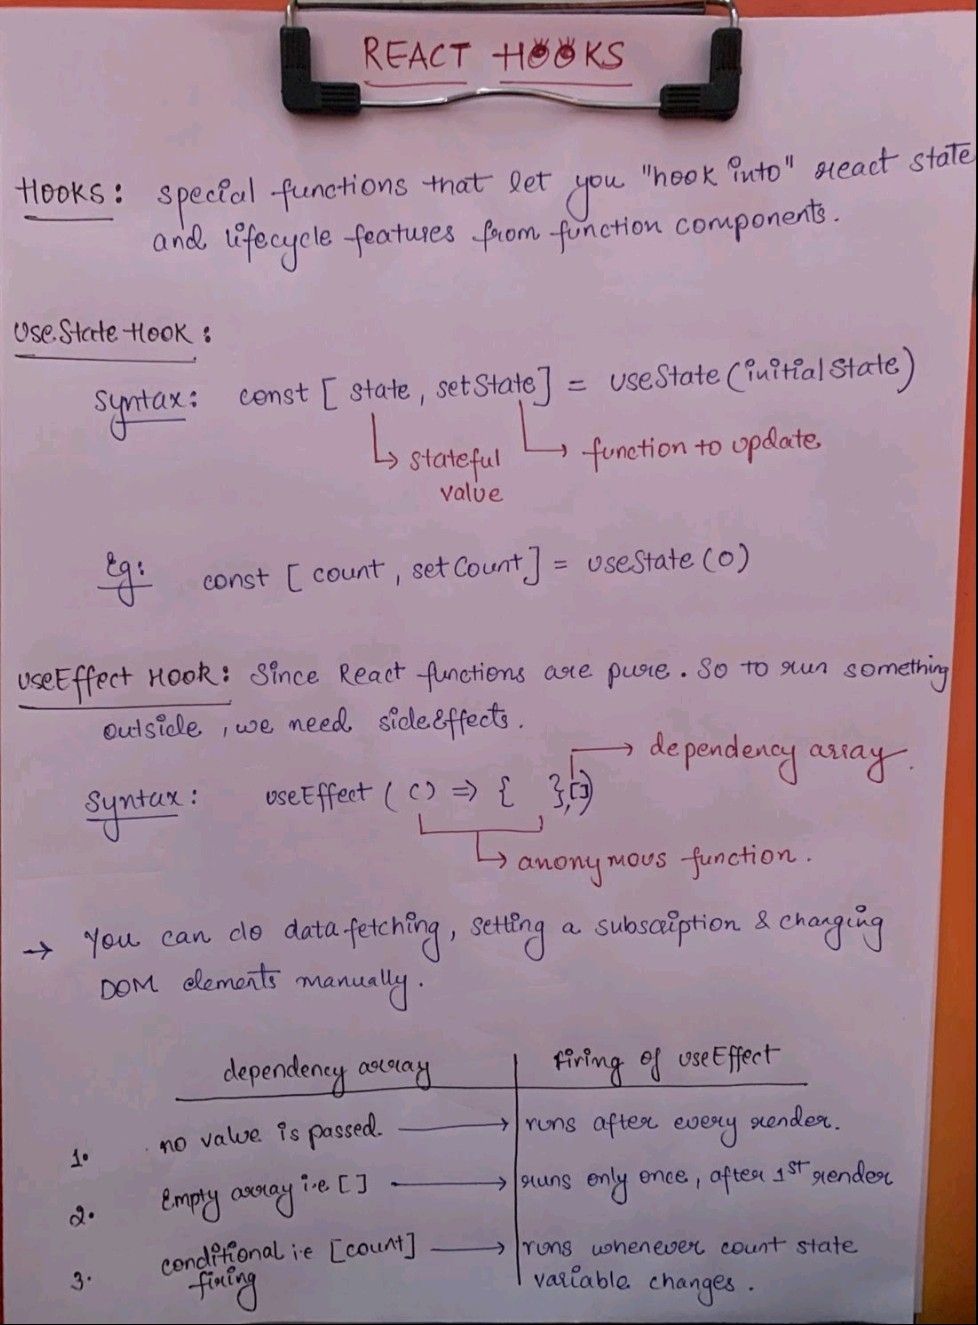 REACT HOOKS
HOOKS: special functions that let you "hook into" react state
and lifecycle features from function components.
UseState Hook:
Syntax: const [ state, setState] = useState(initialState)
stateful
value
function to update
Eg: const [ count, setCount] = useState(0)
useEffect HOOK: Since React functions are pure. So to run something
outside, we need sideEffects.
dependency array.
Syntax: useEffect ( () => { },[])
anonymous function.
→ You can do data fetching, setting a subscription & changing
DOM elements manually.
dependency array | firing of useEffect
1. no value is passed. → runs after every render.
2. Empty array i.e [] → runs only once, after 1st render
3. conditional i.e [count] → runs whenever count state
firing variable changes.